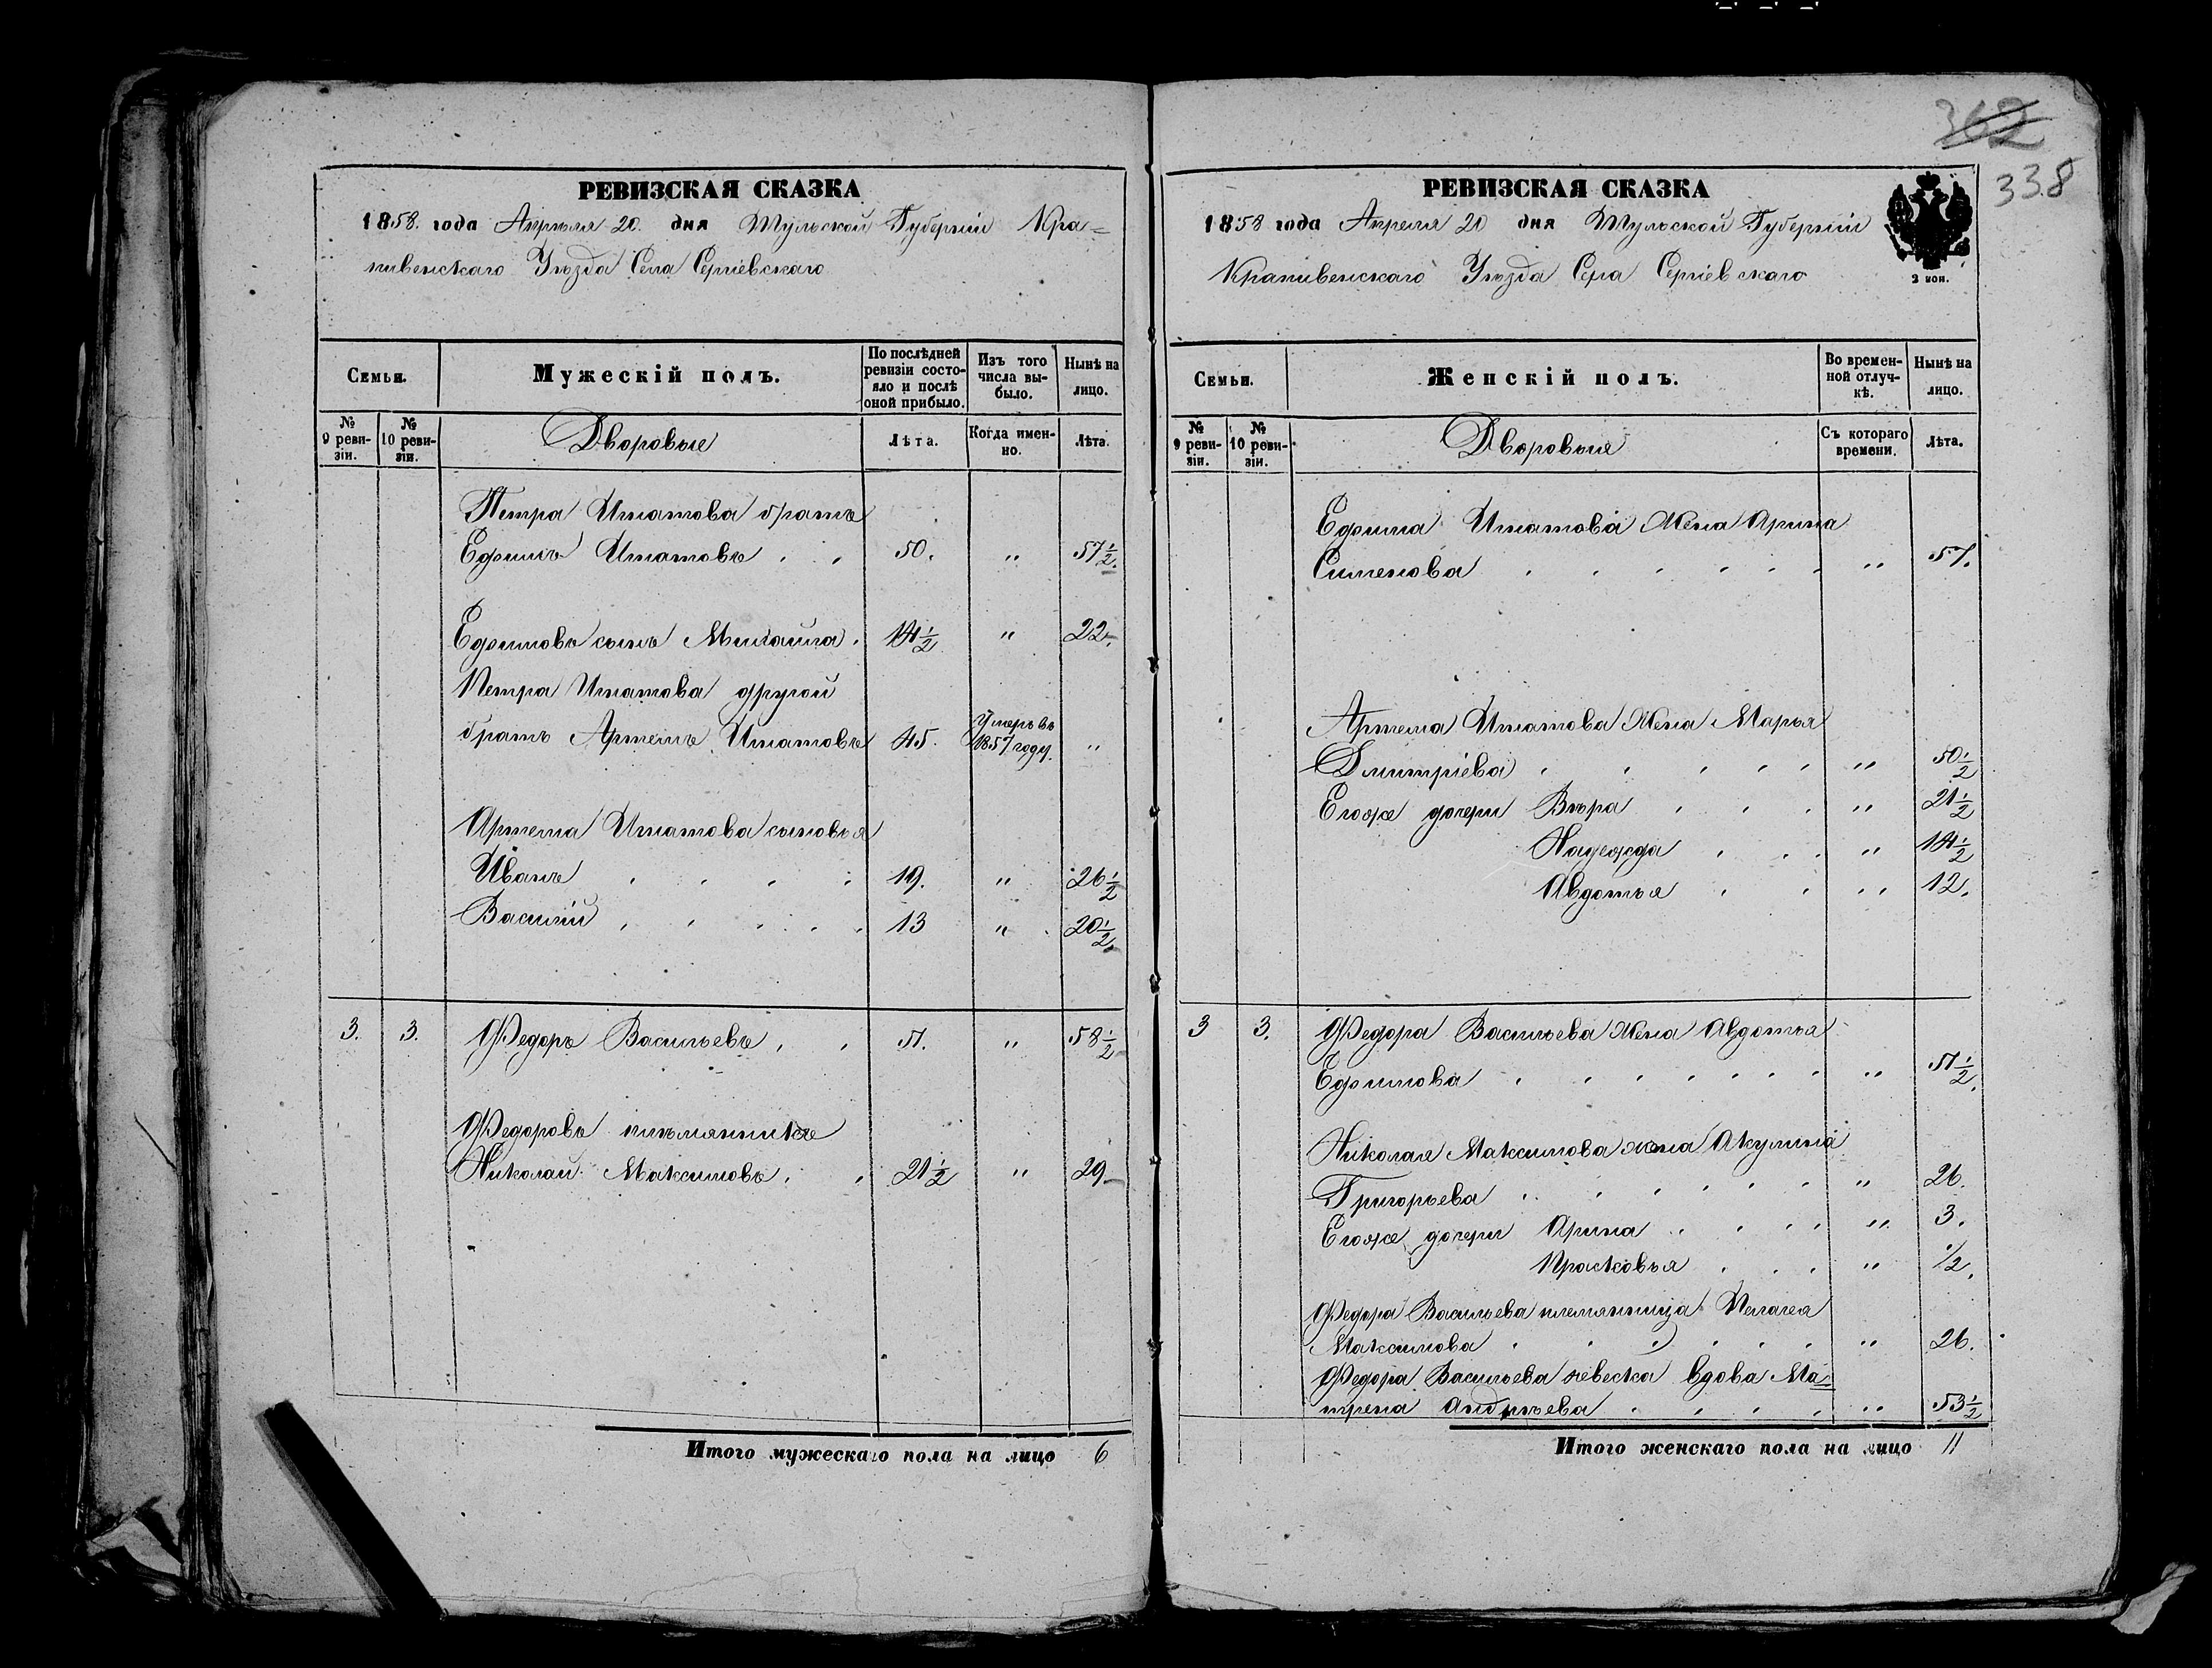 362
338
РЕВИЗСКАЯ СКАЗКА
1858. года Апрѣля 20. дня Тульской Губерніи Кра=
пивенскаго Уѣзда Села Сергіевскаго
Семьи.
Мужескій полъ.
По послѣдней ревизіи состояло и послѣ оной прибыло.
Изъ того числа выбыло.
Нынѣ на лицо.
№ 9 ревизіи.
№ 10 ревизіи.
Дворовые
Лѣта.
Когда именно.
Лѣта.
Петра Игнатова братъ
Ефимъ Игнатовъ . . 50. " 57½.
Ефимовъ сынъ Михайла. 14½ " 22.
Петра Игнатова другой
братъ Артемъ Игнатовъ 45. Умеръ въ 1857 году. "
Артема Игнатова сыновья
Иванъ . . . . 19. " 26½
Василій . . . . . 13 " 20½.
3. 3. Федоръ Васильевъ . . 51. " 58½
Федоровъ племянникъ
Николай Максимовъ . . 21½ " 29
Итого мужескаго пола на лицо 6
РЕВИЗСКАЯ СКАЗКА
1858 года Апреля 20 дня Тульской Губерніи
Крапивенскаго Уѣзда Села Сергіевскаго
2 коп.
Семьи.
Женскій полъ.
Во временной отлучкѣ.
Нынѣ на лицо.
№ 9 ревизіи.
№ 10 ревизіи.
Дворовыя
Съ котораго времени.
Лѣта.
Ефима Игнатова Жена Арина
Сименова . . . . . . " 57.
Артема Игнатова Жена Марья
Дмитріева . . . . . " 50½
Егоже дочери Вѣра . . . " 21½
Надежда . . . " 14½
Авдотья . . " 12.
3 3. Федора Васильева Жена Авдотья
Ефимова . . . . . . . " 51½.
Николая Максимова жена Акулина
Григорьева . . . . . . " 26.
Егоже дочери Арина . . . . " 3.
Прасковья . . . " ½.
Федора Васильева племянница Пелагея
Максимова . . . . . . " 26.
Федора Васильева невестка вдова Ма=
трена Андрѣева . . . . " 53½
Итого женскаго пола на лицо 11